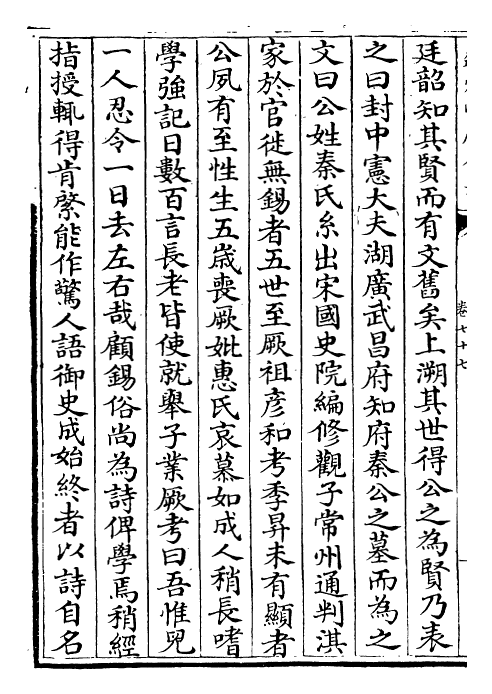 廷韶知其賢而有文舊矣上溯其世得公之為賢乃表
之曰封中憲大夫湖廣武昌府知府秦公之墓而為之
文曰公姓秦氏系出宋國史院編修觀子常州通判淇
家於官徙無錫者五世至厥祖彥和考季昇未有顯者
公夙有至性生五歲喪厥妣惠氏哀慕如成人稍長嗜
學強記日數百言長老皆使就舉子業厥考曰吾惟兒
一人忍令一日去左右哉顧錫俗尚為詩俾學焉稍經
指授輒得肯綮能作驚人語御史成始終者以詩自名
卷七十七